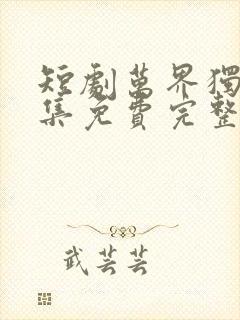 短劇萬界獨
集免費完整
武芸芸